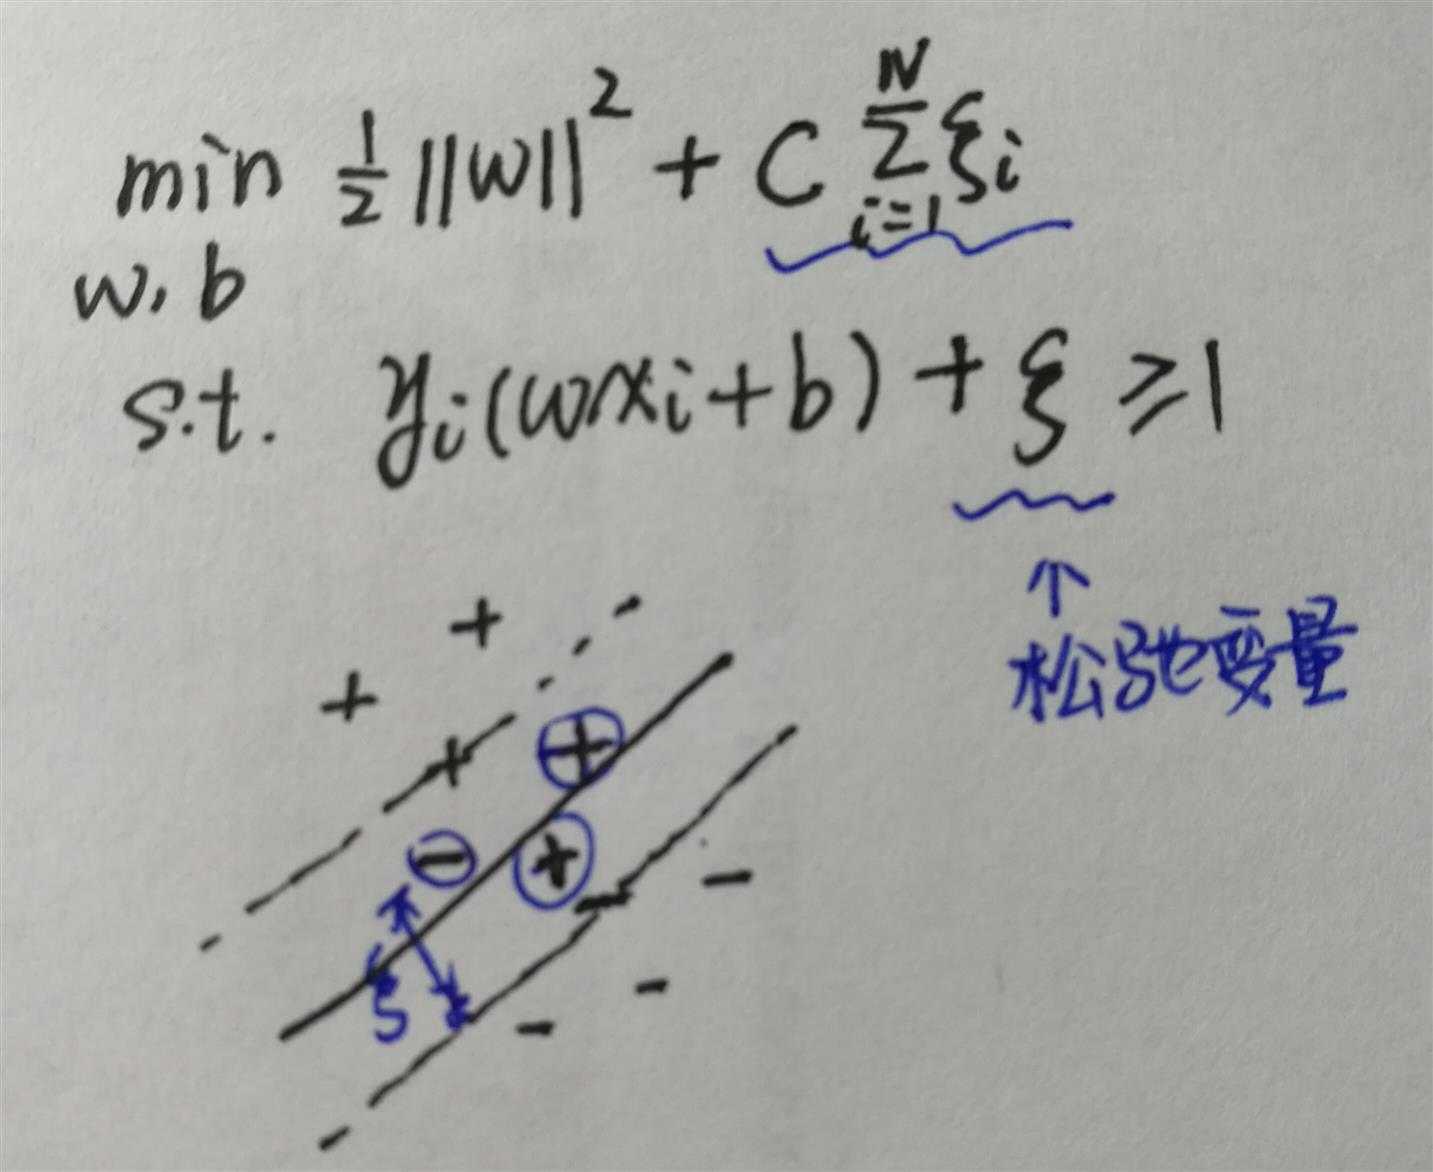 min 1/2 ||w||² + C Σ_{i=1}^{N} ξi
w, b
s.t. yi(wxi+b) + ξ ≥ 1
↑
松弛变量
+
+
+ ⊕
⊖ ⊕
- -
ξ
-
-